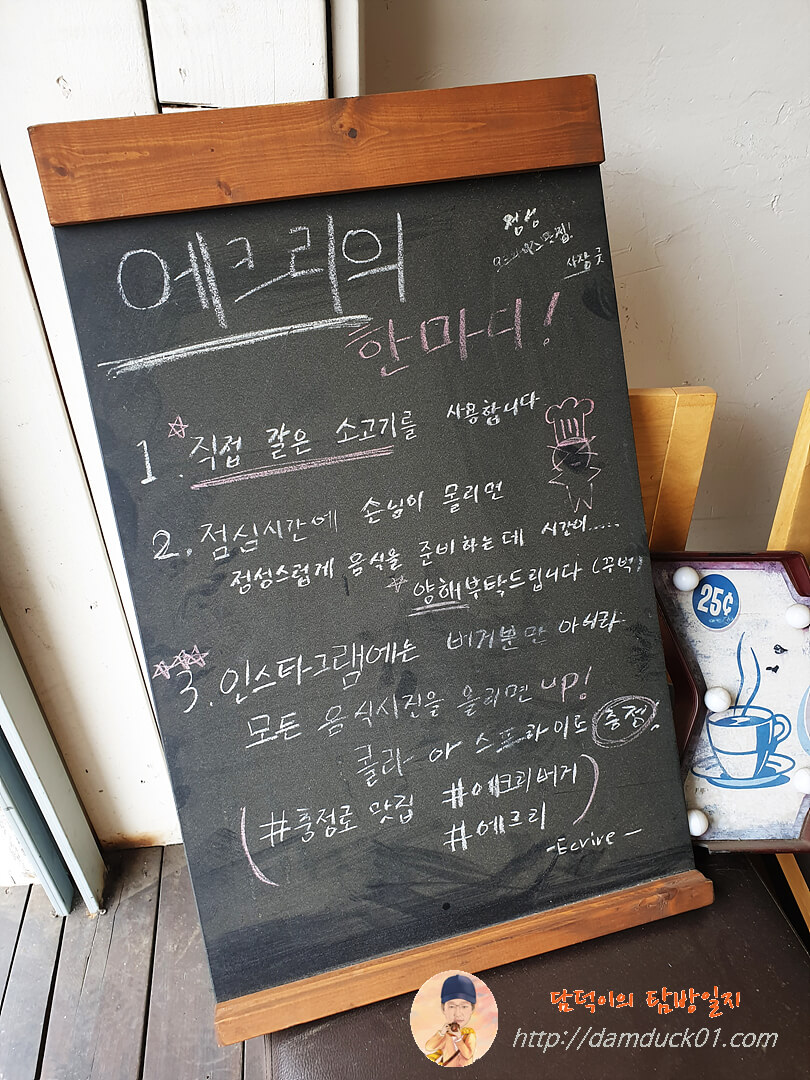 에크리의
한마디!
점심
맛집!
사장 굿
1. 직접 갈은 소고기를 사용합니다
2. 점심시간에 손님이 몰리면
정성스럽게 음식을 준비하는데 시간이.....
양해부탁드립니다 (꾸벅)
3. 인스타그램에는 버거뿐만 아니라
모든 음식사진을 올리면 up!
콜라 or 스프라이트 충전!
(#충정로 맛집 #에크리버거
#에크리)
-Ecrire-
25¢
담덕이의 탐방일지
http://damduck01.com